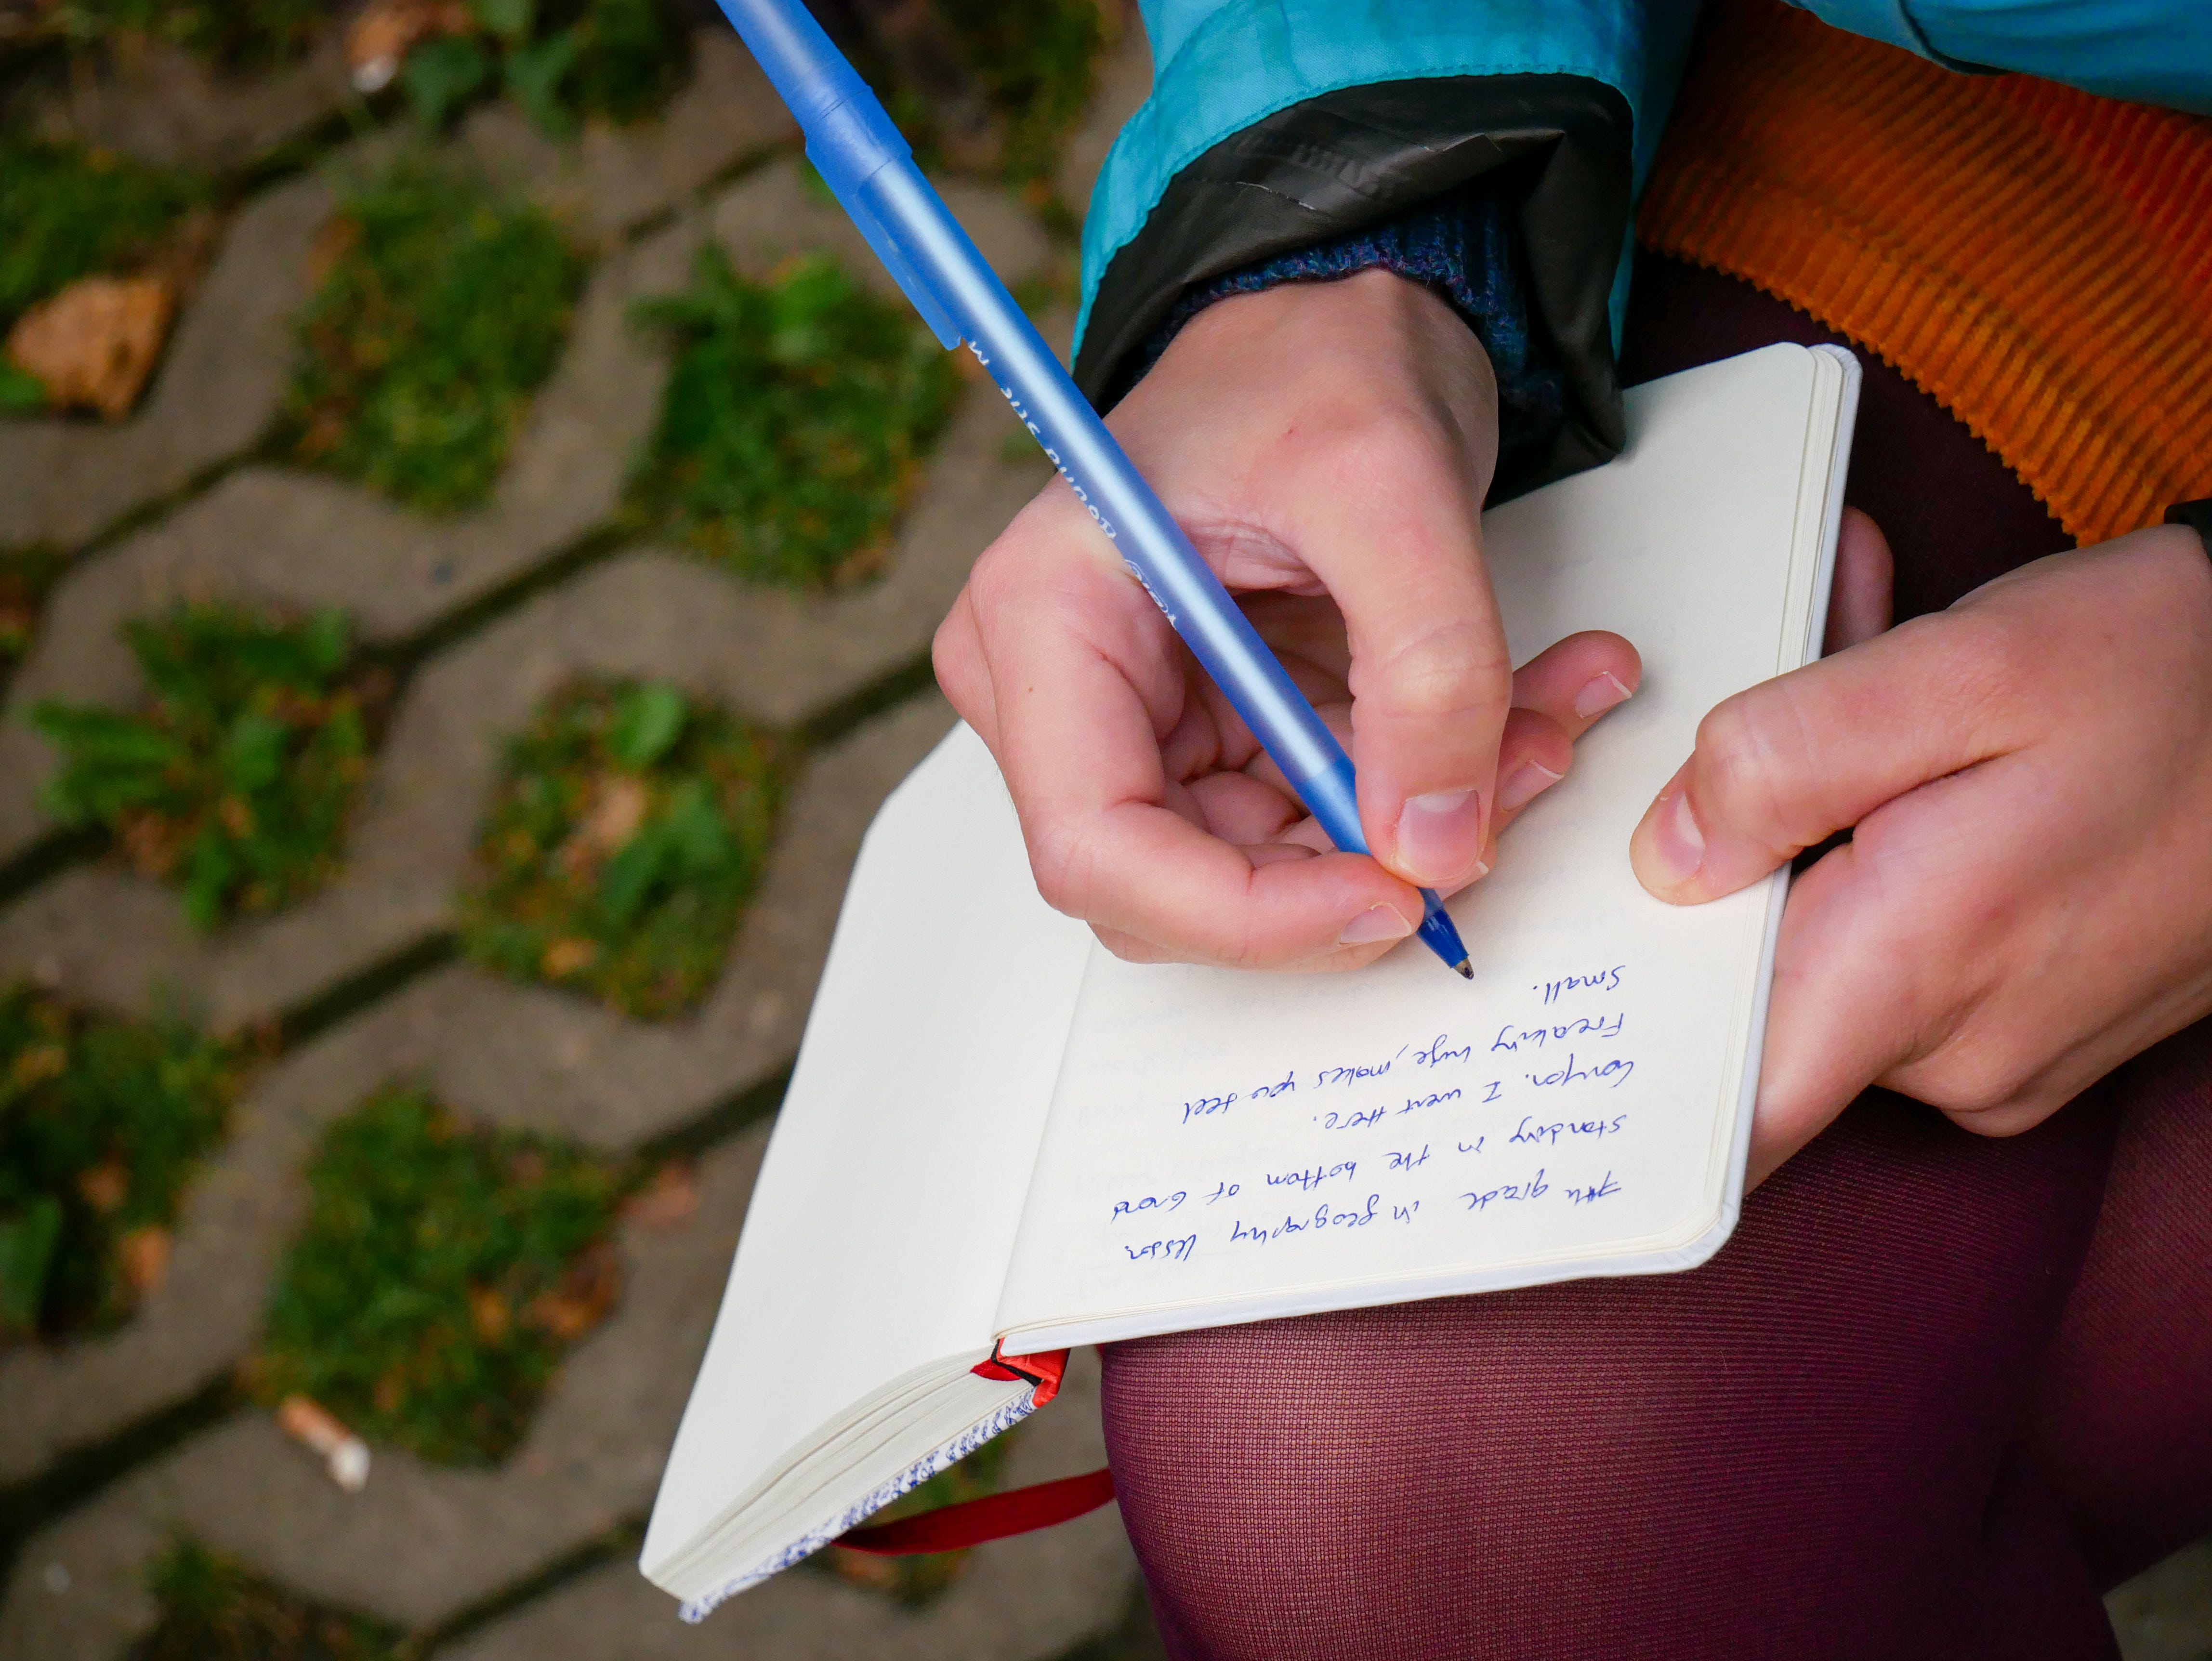 7th grade in geography lesson.
Standing in the bottom of Grand
Canyon. I went there.
Freaking huge, makes you feel
Small.
BIC Round Stic M